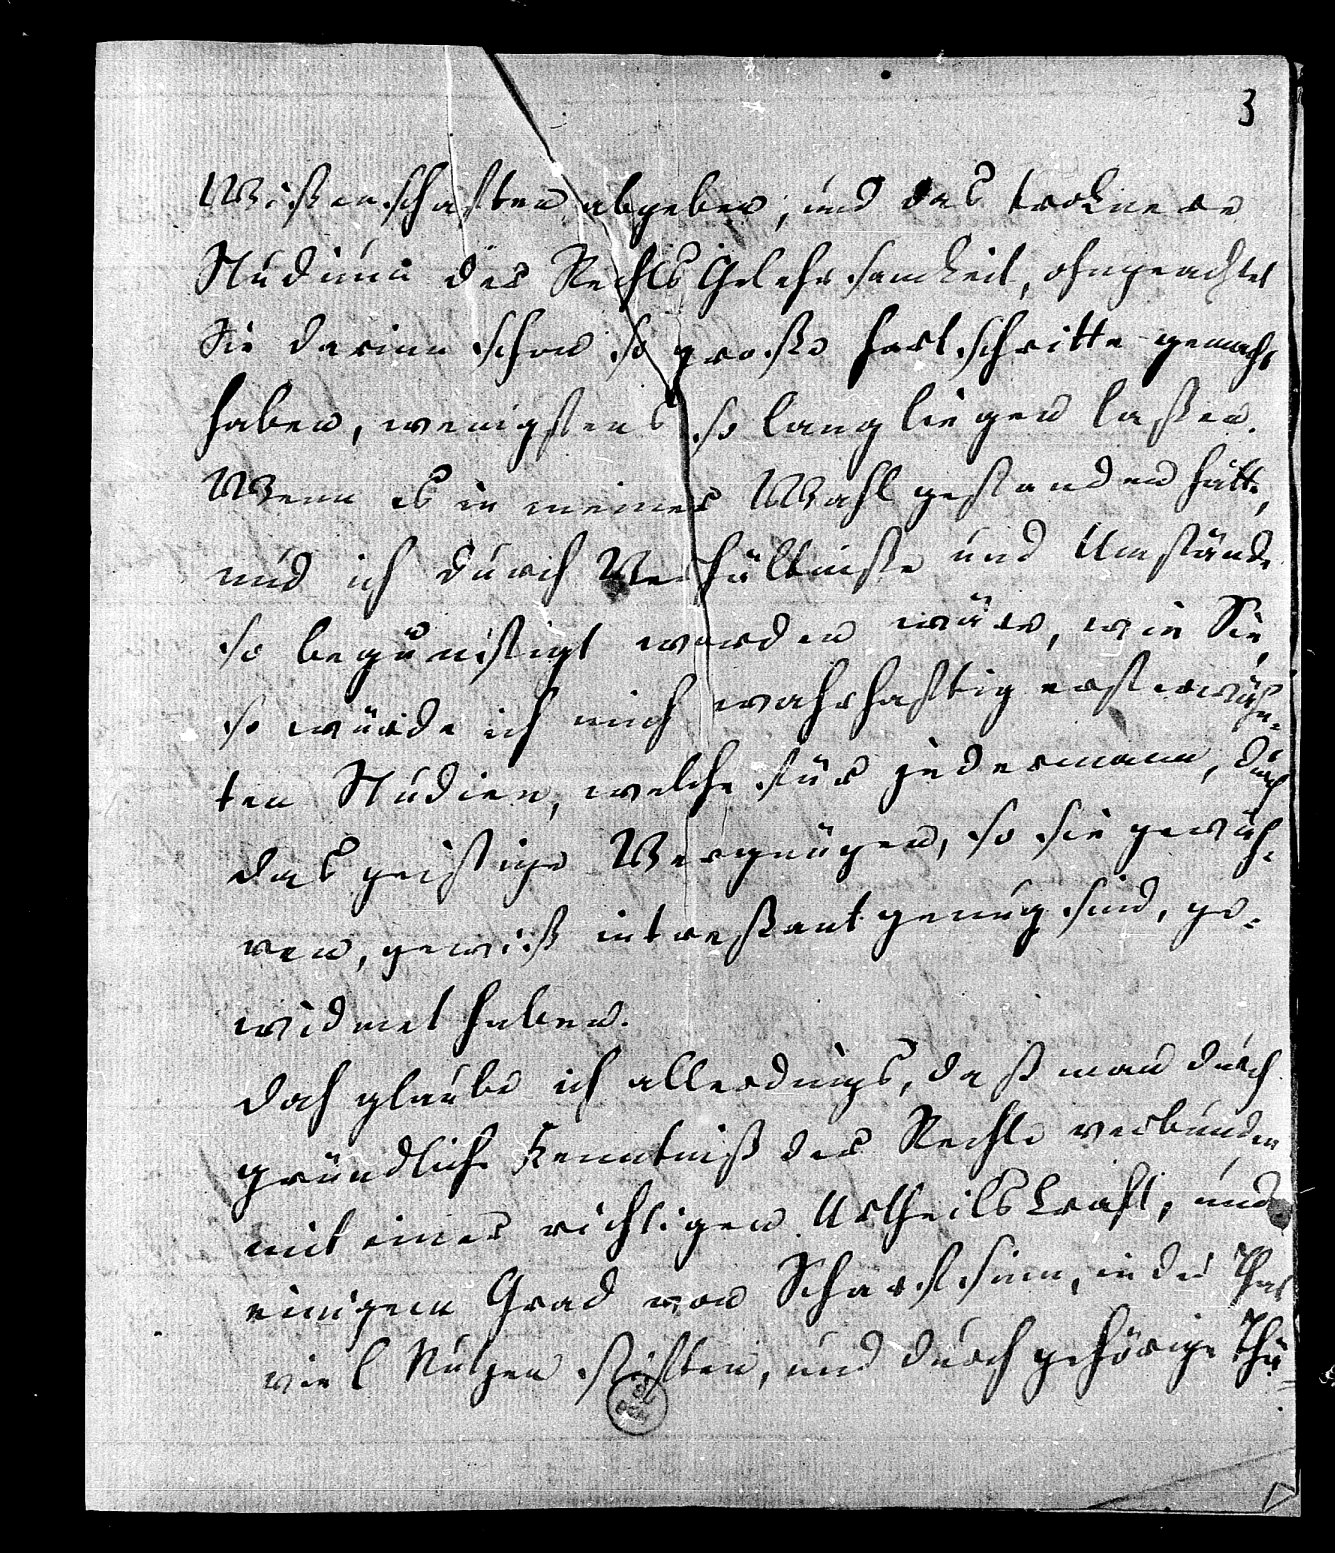 3
Wißenschaften abgeben, und das troknere
Studium der Rechts Gelehrsamkeit, ohngeachtet
Sie darinn schon so große Fortschritte gemacht
haben, wenigstens so lang liegen laßen.
Wenn es in meiner Wahl gestanden hätte,
und ich durch Verhältniße und Umstände
so begünstigt worden wäre, wie Sie,
so würde ich mich wahrhaftig ersterwähn-
ten Studien, welche für jedermann, durch
das geistige Vergnügen, so sie gewäh-
ren, gewiß intreßant genug sind, ge-
widmet haben.
Doch glaube ich allerdings, daß man durch
gründliche Kenntniß der Rechte verbunden
mit einer richtigen Urtheilskraft, und
einigem Grad von Scharfsinn, in der That
viel Nutzen stiften, und durch gehörige Thä-